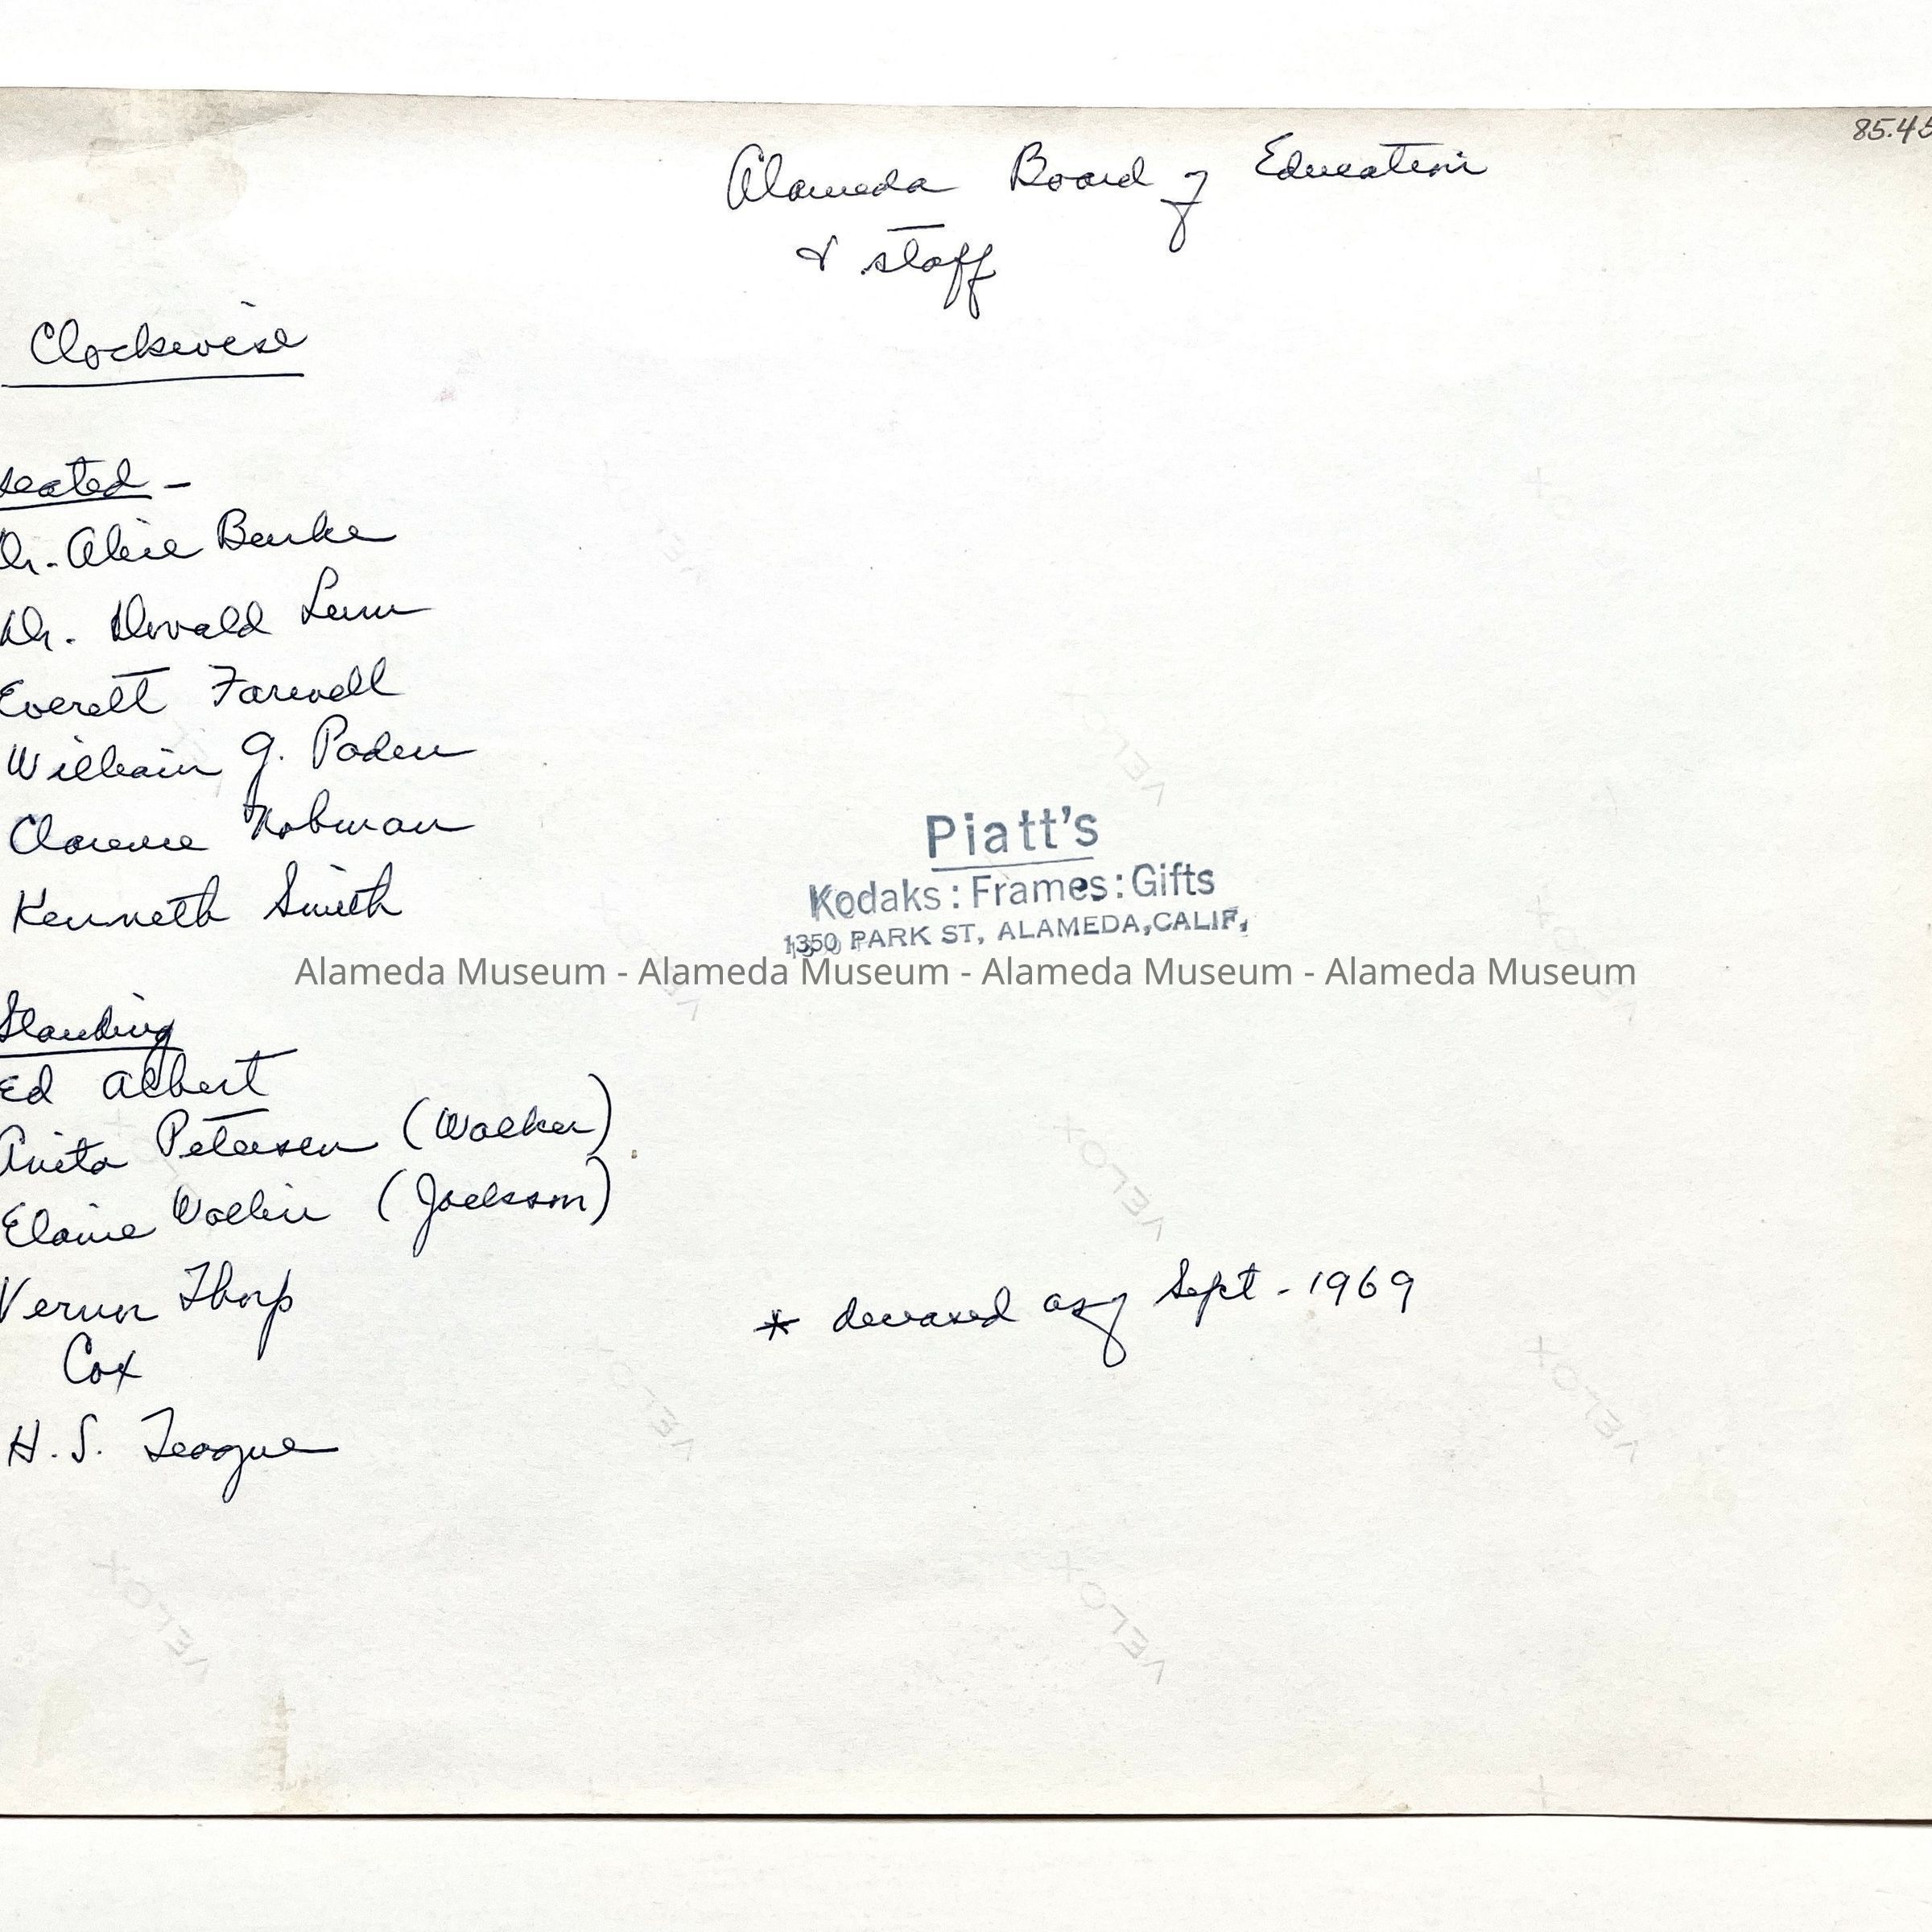 85.45
Alameda Board of Education
& staff
Clockwise
seated -
Dr. Alice Burke
Dr. Donald Lum
Everett Farwell
William G. Paden
Clarence
Kenneth Smith
Piatt's
Kodaks : Frames : Gifts
1350 PARK ST, ALAMEDA, CALIF,
Alameda Museum - Alameda Museum - Alameda Museum - Alameda Museum
Standing
Ed Albert
Anita Petersen (Walker)
Elaine Wallin (Jackson)
Vernon Thorp
Cox
H. S. Teague
* deceased as of Sept - 1969
VELOX
VELOX
VELOX
VELOX
VELOX
VELOX
VELOX
VELOX